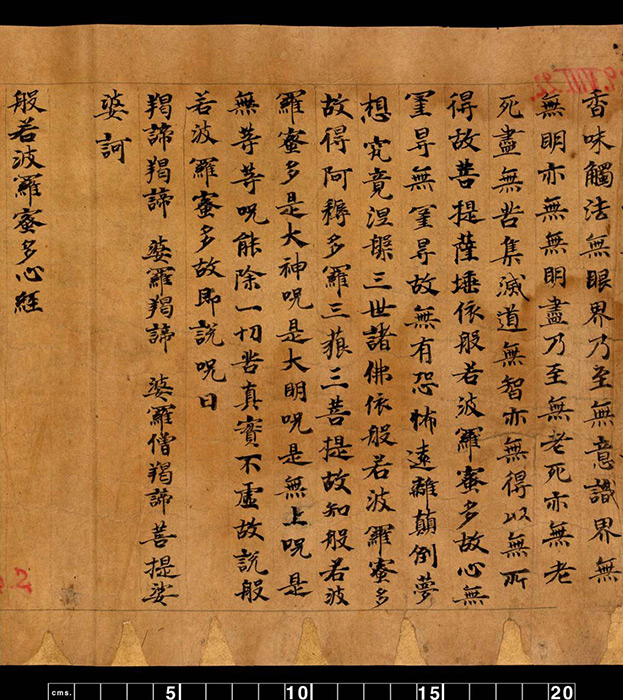 香味觸法無眼界乃至無意識界無
無明亦無無明盡乃至無老死亦無老
死盡無苦集滅道無智亦無得以無所
得故菩提薩埵依般若波羅蜜多故心無
罣㝵無罣㝵故無有恐怖遠離顛倒夢
想究竟涅槃三世諸佛依般若波羅蜜多
故得阿耨多羅三藐三菩提故知般若波
羅蜜多是大神呪是大明呪是無上呪是
無等等呪能除一切苦真實不虛故說般
若波羅蜜多故即說呪曰
羯諦羯諦 婆羅羯諦 婆羅僧羯諦菩提娑
婆訶
般若波羅蜜多心經
2
cms. 5 10 15 20